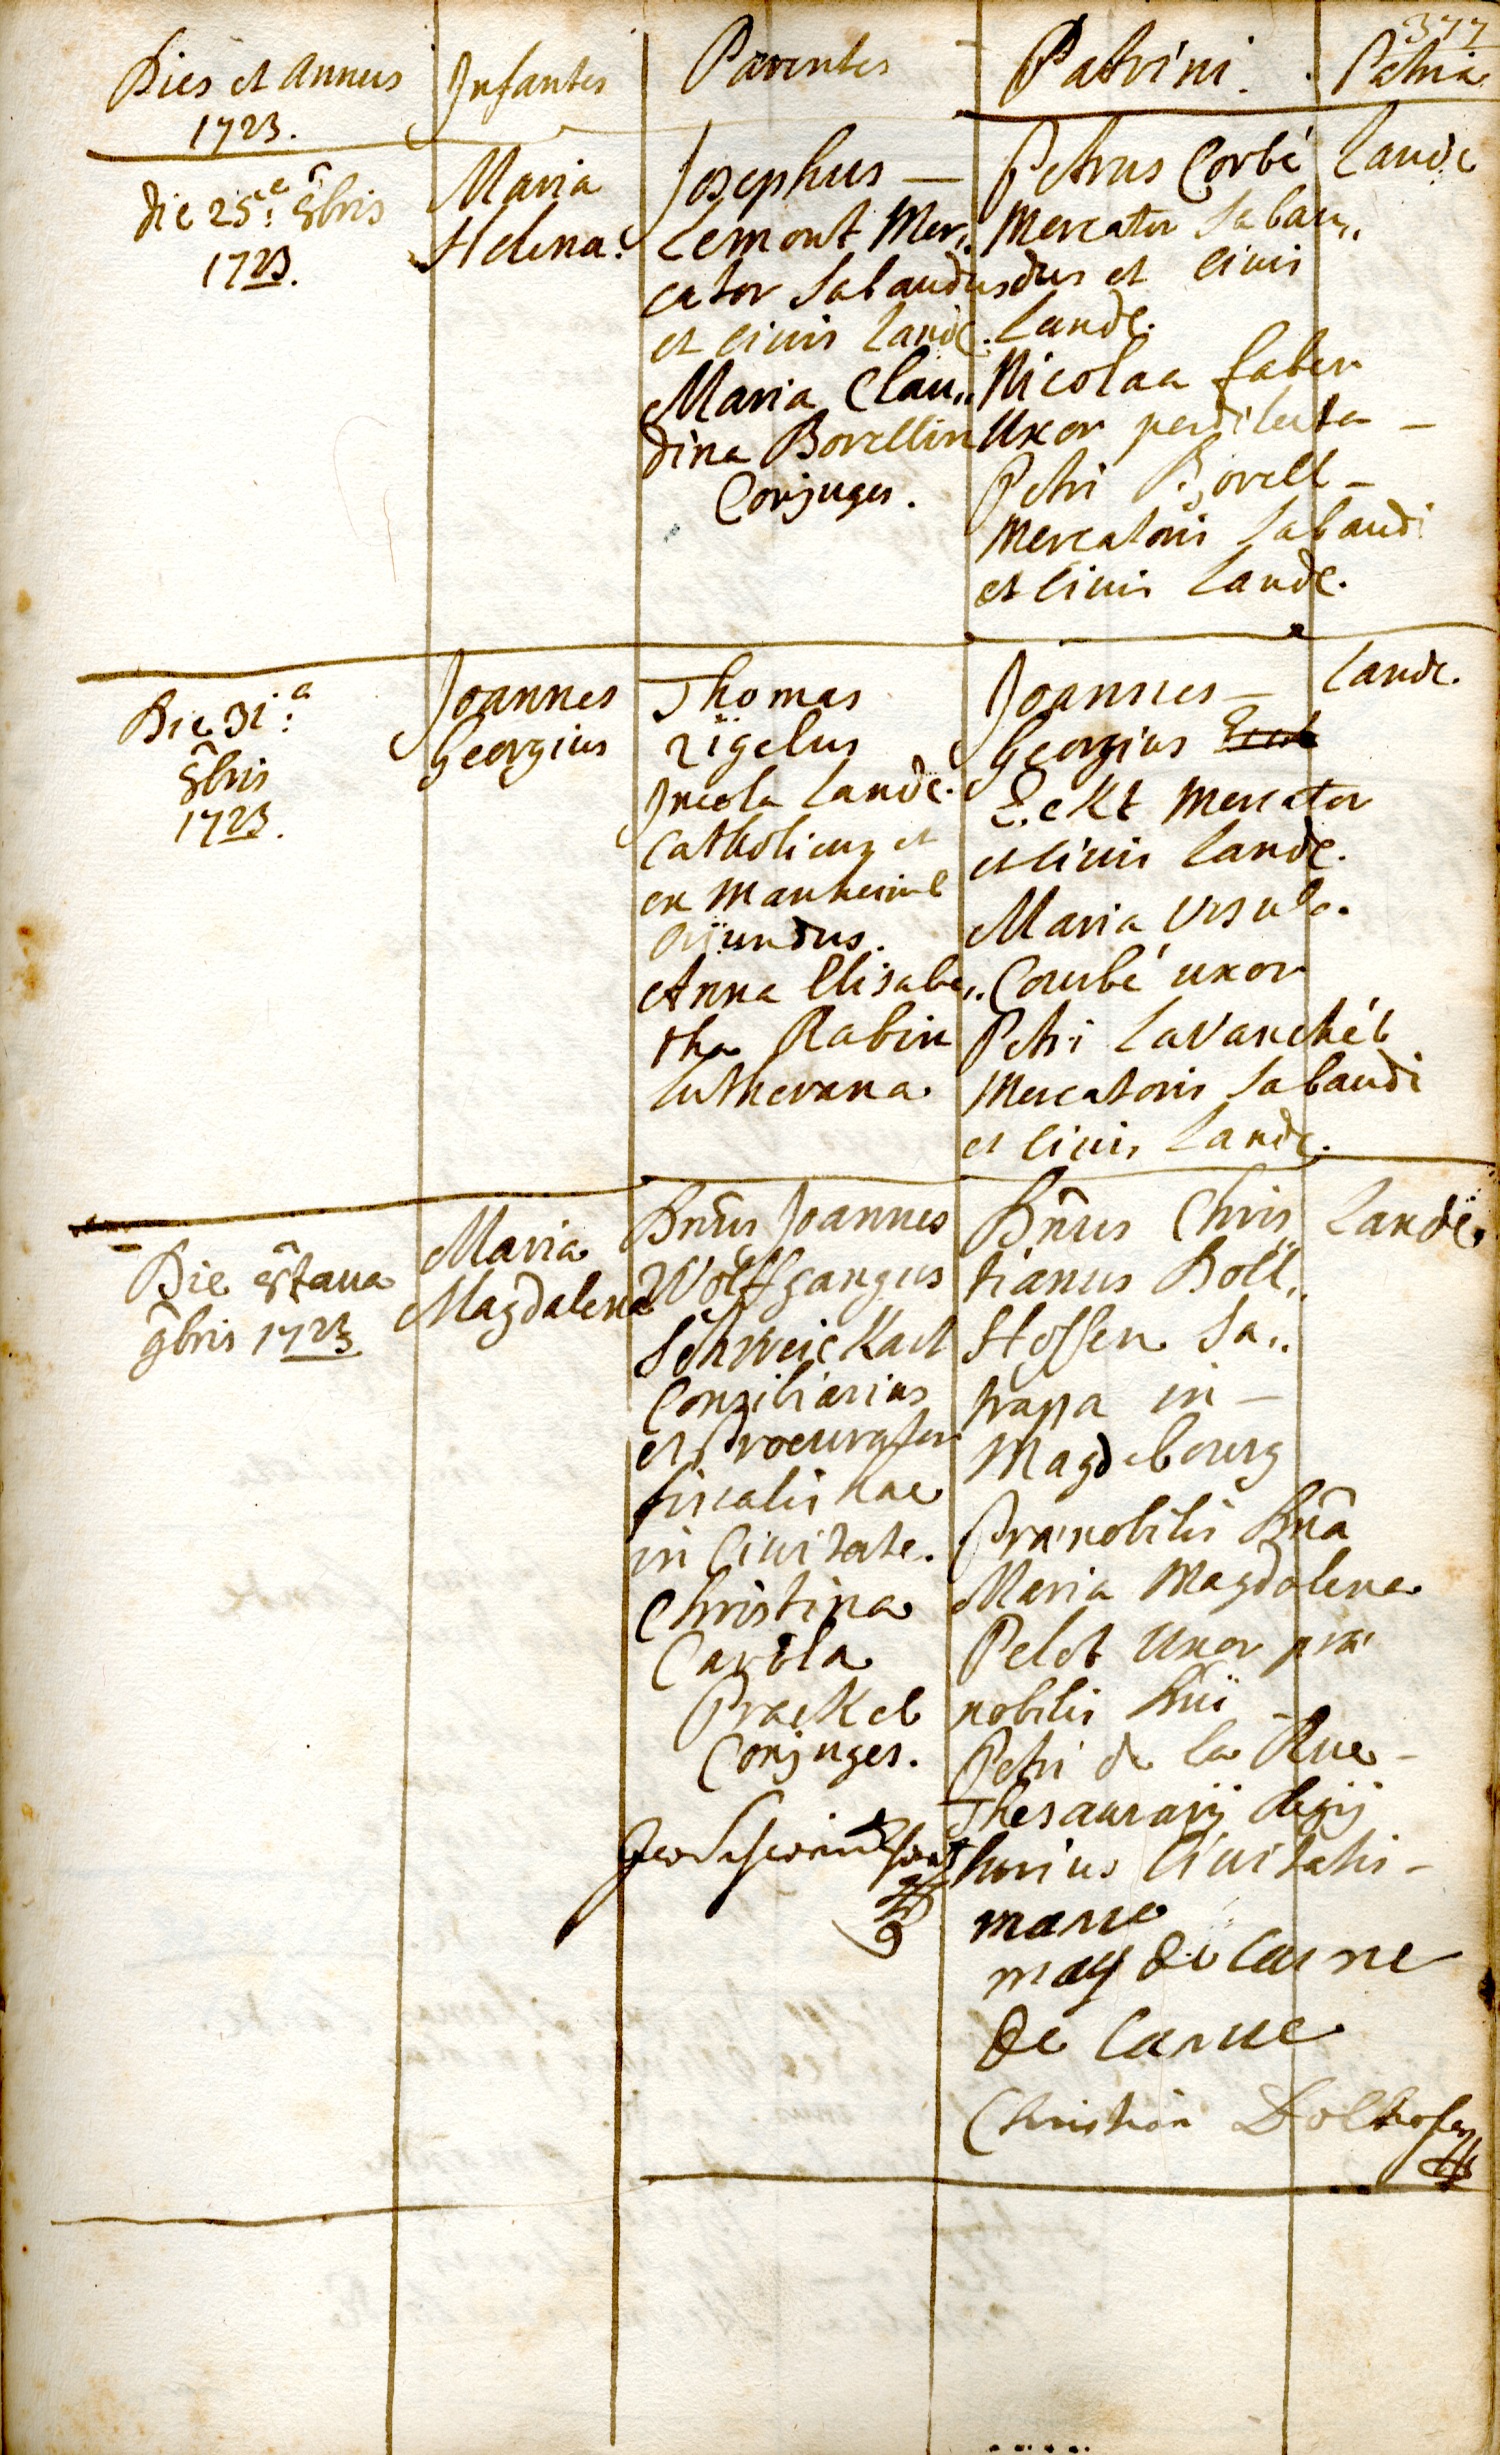 377
Dies et annus
1723.
Infantes
Parentes
Patrini.
Patria
die 25.a 8bris
1723.
Maria
Helena.
Josephus —
Lemont Mer„
cator Sabaudus
et civis Landꝫ.
Maria Clau„
dina Borellin
Conjuges.
Petrus Corbé
Mercator Sabau„
dus et civis
Landꝫ.
Nicolaa faber
Uxor perdilecta —
Petri Borell —
Mercatoris Sabaudi
et civis Landꝫ.
Landꝫ
Die 31.a
8bris
1723.
Joannes
Georgius
Thomas
rigelus
Incola Landꝫ.
Catholicus et
ex Manheim
oriundus.
Anna Elisabe„
tha Rabin
lutherana
Joannes —
Georgius
Eckt Mercator
et civis Landꝫ.
Maria Ursula.
Courbé uxor
Petri LaVanchéb
Mercatoris Sabaudi
et civis Landꝫ.
Landꝫ.
Die 8tava
9bris 1723
Maria
Magdalena
Dnus Joannes
Wolffgangus
Schweickart
Consiliarius
et Procurator
fiscalis hac
in Civitate.
Christina
Carola
Prackel
Conjuges.
Dnus Chris„
tianus Doll„
Hoffen Sa„
trapa in —
Magdebourg
Prænobilis Dna
Maria Magdalena
Pelot Uxor præ
nobilis Dni —
Petri de la Rue —
Thesaurarij Regij
hujus Civitatis —
marie
mag de Carne
De Carue
Christian Dolhofen
Landꝫ.